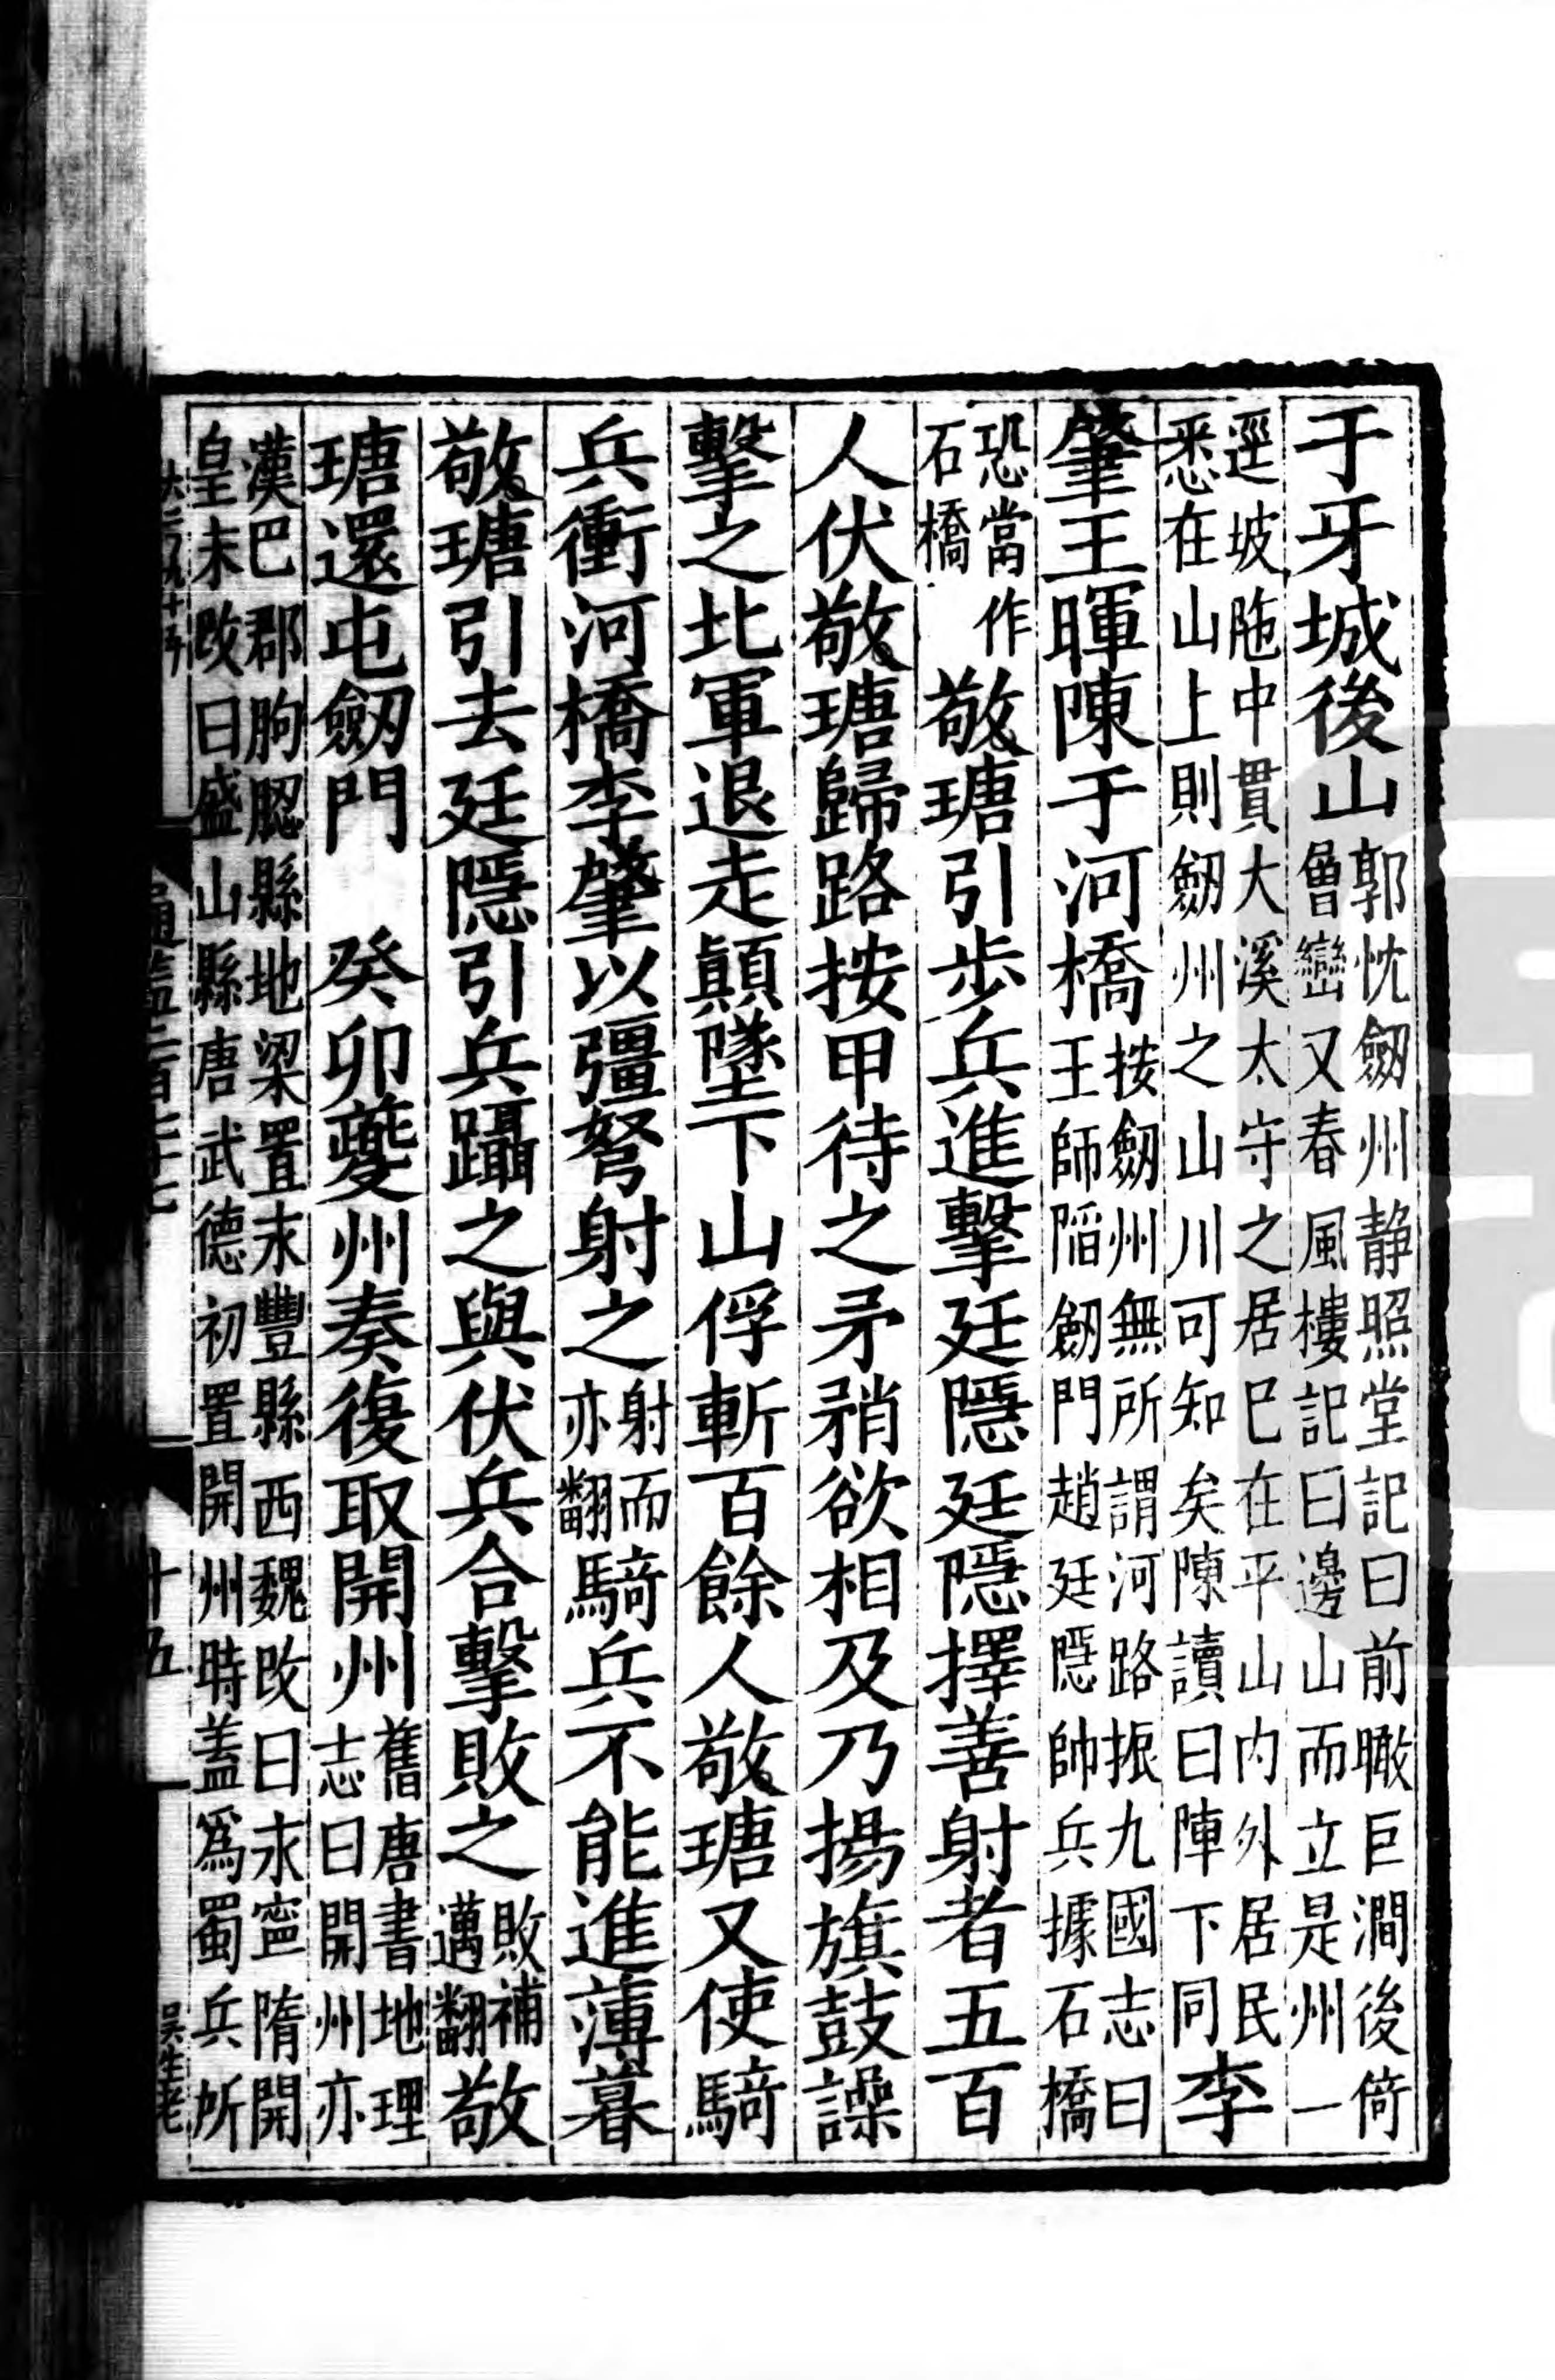 于牙城後山郭忱劒州静照堂記曰前瞰巨澗後倚層巒又春風樓記曰邊山而立是州一
逕坡陁中貫大溪太守之居巳在平山内外居民悉在山上則劒州之山川可知矣陳讀曰陣下同李
肇王暉陳于河橋按劒州無所謂河路振九國志曰王師陷劒門趙廷隱帥兵據石橋
恐當作石橋敬瑭引步兵進擊廷隱廷隱擇善射者五百
人伏敬瑭歸路按甲待之矛矟欲相及乃揚旗鼓譟
擊之北軍退走顛墜下山俘斬百餘人敬瑭又使騎
兵衝河橋李肇以彊弩射之射而亦翻騎兵不能進薄暮
敬瑭引去廷隱引兵躡之與伏兵合擊敗之敗補邁翻敬
瑭還屯劒門　癸卯夔州奏復取開州舊唐書地理志曰開州亦
漢巴郡朐䏰縣地梁置永豐縣西魏改曰永寧隋開皇末改曰盛山縣唐武德初置開州時蓋爲蜀兵所
通鑑二百七十七
十五